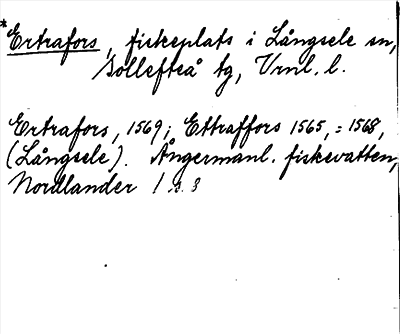 *Ertrafors, fiskeplats i Långsele sn,
Sollefteå tg, Vrnl. l.
Ertrafors, 1569; Ettraffors 1565, = 1568,
(Långsele). Ångermanl. fiskevatten,
Nordlander 1 s. 3